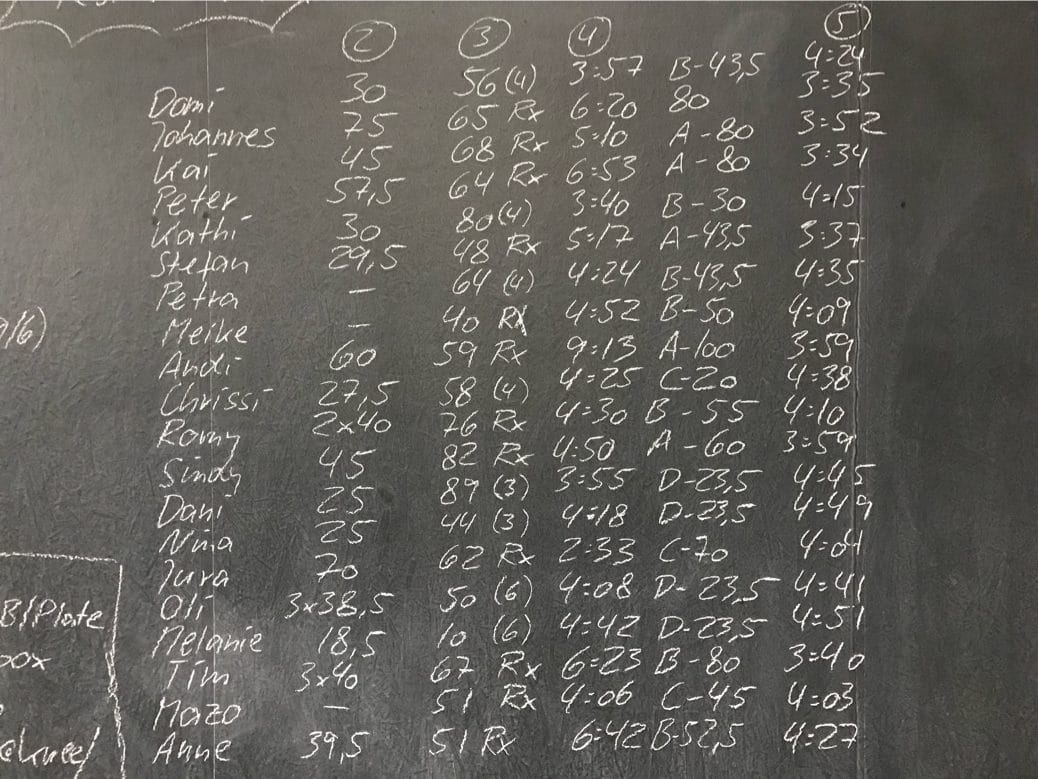 2 3 4 5
Domi 30 56 (4) 3:57 B-43,5 4:24
Johannes 75 65 Rx 6:20 80 3:35
Kai 45 68 Rx 5:10 A-80 3:52
Peter 57,5 64 Rx 6:53 A-80 3:34
Kathi 30 80 (4) 3:40 B-30 4:15
Stefan 29,5 48 Rx 5:17 A-43,5 3:37
Petra – 64 (4) 4:24 B-43,5 4:35
Meike – 40 Rx 4:52 B-50 4:09
Andi 60 59 Rx 9:13 A-100 3:59
Chrissi 27,5 58 (4) 4:25 C-20 4:38
Romy 2x40 76 Rx 4:30 B-55 4:10
Sindy 45 82 Rx 4:50 A-60 3:59
Dani 25 89 (3) 3:55 D-23,5 4:45
Nina 25 44 (3) 4:18 D-23,5 4:49
Jura 70 62 Rx 2:33 C-70 4:01
Oli 3x38,5 50 (6) 4:08 D-23,5 4:41
Melanie 18,5 10 (6) 4:42 D-23,5 4:51
Tim 3x40 67 Rx 6:23 B-80 3:40
Mazo – 51 Rx 4:06 C-45 4:03
Anne 39,5 51 Rx 6:42 B-52,5 4:27
/6)
B/Plate
box